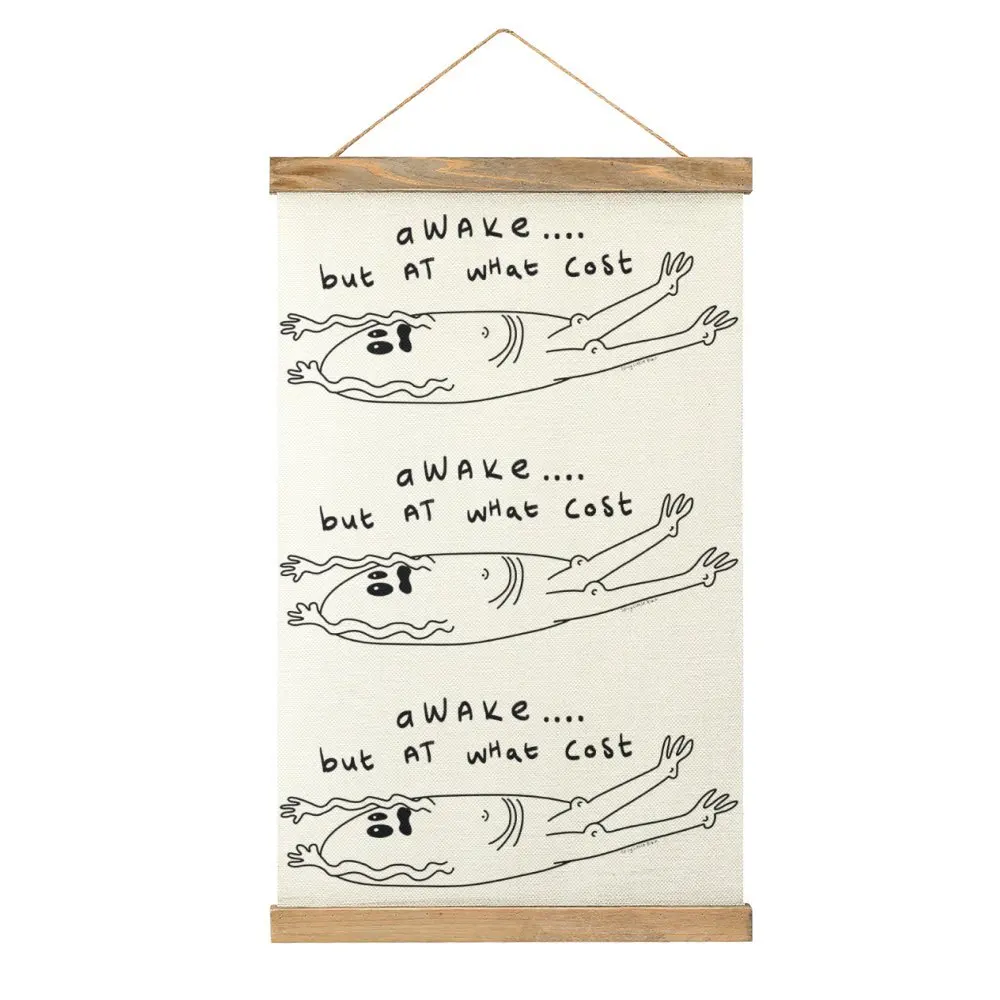 aWAKe....
but AT wHat CoSt
aWAKe....
but AT wHat CoSt
aWAKe....
but AT wHat CoSt